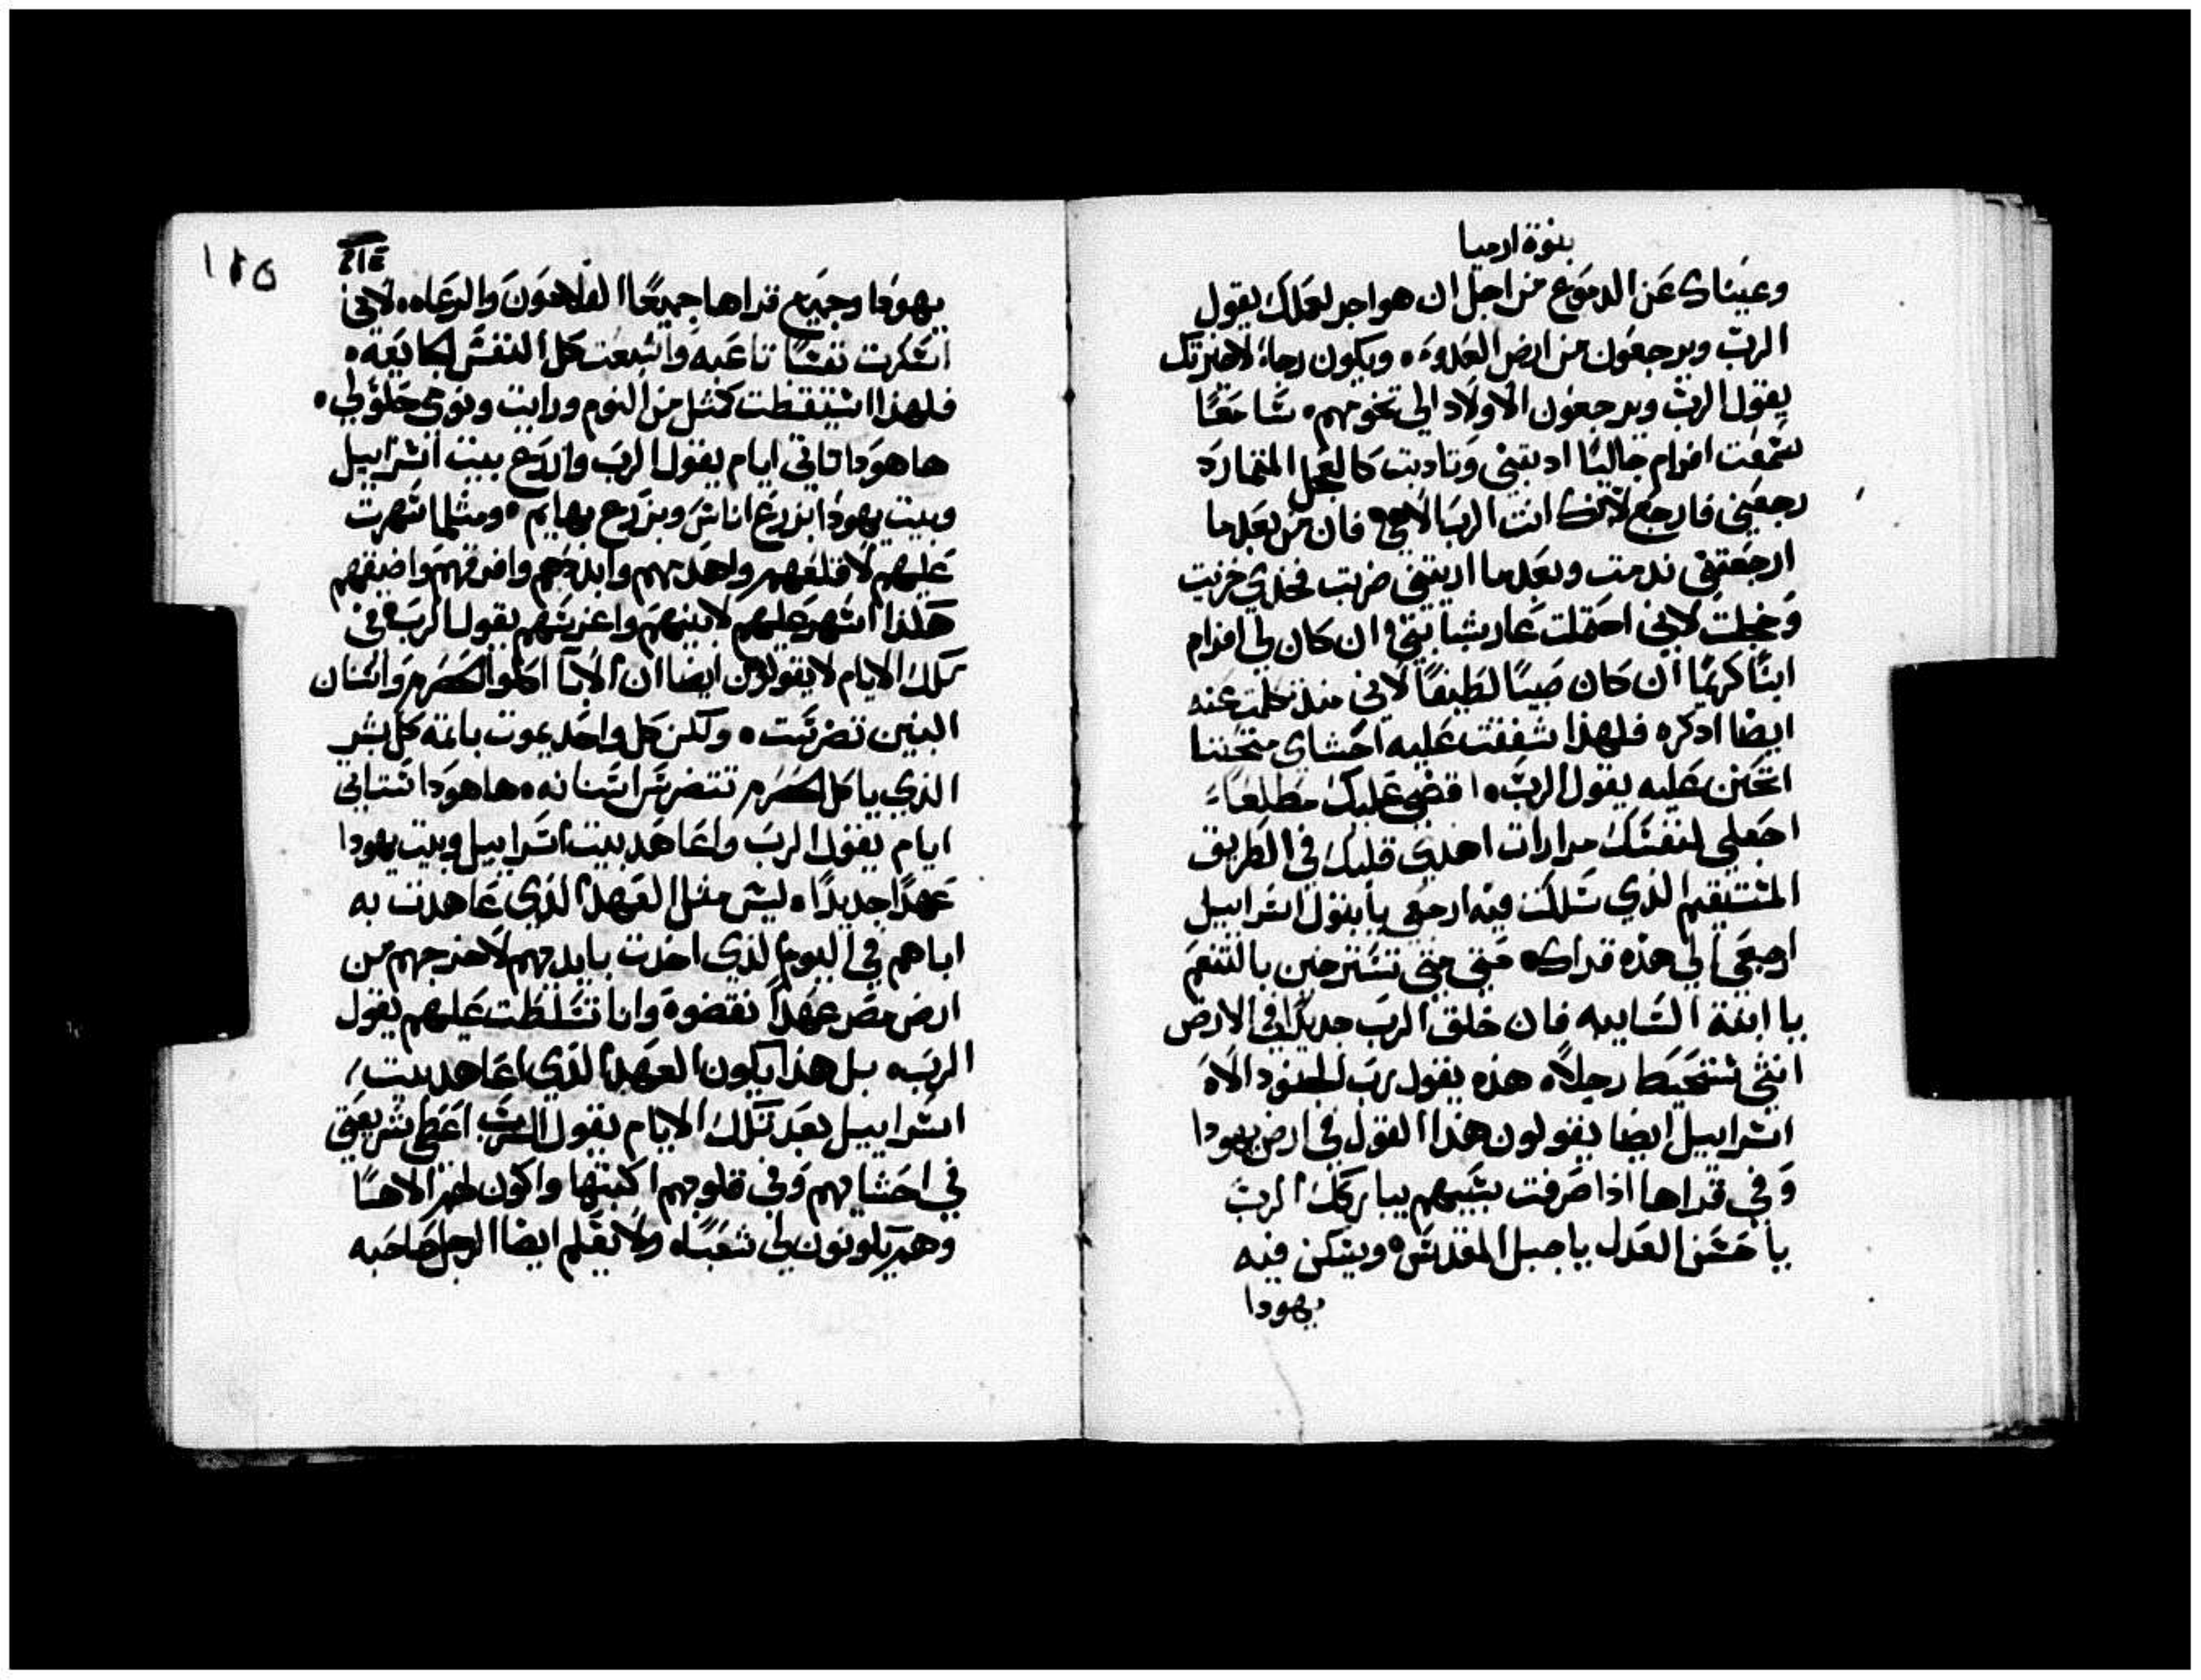 بنوة ارميا
وعيناك عن الدموع من اجل ان هو اجر لعملك يقول
الرب ويرجعون من ارض العدوه ويكون رجاء لاخيرتك
يقول الرب ويرجعون الاولاد الى تخومهم سامعًا
سمعت افرام جاليًا ادبتني وتادبت كالعجل المتمارد
رجعني فارجع لانك انت الرب الاهي فان من بعد ما
ارجعتني ندمت وبعد ما اريتني ضربت فخدي خزيت
وخجلت لاني احتملت عار شبابتي ان كان لي افرام
ابنًا كريمًا ان كان صبيًا لطيفًا لاني منذ تكلمت عنه
ايضا ادكره فلهذا شفقت عليه احشاي متحننا
اتحنن عليه يقول الرب اقضي عليك مطلعًا
اجعلي لنفسك مرارات اهدي قلبك في الطريق
المستقيم الذي سلكت فيه ارجعي يا بتول اسراييل
ارجعي الى هذه قراك متى متى تسترخين بالتنعم
يا ابنة السايبه فان خلق الرب جديدًا في الارض
انثى ستحيط رجلاً هذه يقول رب الجنود الاه
اسراييل ايضا يقولون هذا القول في ارض يهودا
وفي قراها اذا صرفت سبيهم يباركك الرب
يا حسن العدل يا جبل المقدس ويسكن فيه
يهودا
١٢٥
يهودا وجميع قراها جميعًا الفلاحون والرعاه لاني
اسكرت نفسًا تاعبه واشبعت كل النفس الجايعه
فلهذا استيقظت كمثل من النوم ورايت ونومي حلو لي
ها هودا تاتي ايام يقول الرب وازرع بيت اسراييل
وبيت يهودا بزرع اناس وبزرع بهايم ومثلما سهرت
عليهم لاقلعهم واهدمهم وابددهم وافرقهم واضيقهم
هكذا اسهر عليهم لابنيهم واغرسهم يقول الرب في
تلك الايام لا يقولون ايضا ان الابا اكلوا الحصرم واسنان
البنين تضرست ولكن كل واحد يموت باثمه كل بشر
الذي ياكل الحصرم تتضرس اسنانه ها هودا ستاتي
ايام يقول الرب واعاهد بيت اسراييل وبيت يهودا
عهدًا جديدًا ليس مثل العهد الذي عاهدت به
اباهم في اليوم الذي اخدت بايديهم لاخرجهم من
ارض مصر عهدًا نقضوه وانا تسلطت عليهم يقول
الرب بل هذا يكون العهد الذي اعاهد بيت
اسراييل بعد تلك الايام يقول الرب اعطي شريعتي
في احشايهم وفي قلوبهم اكتبها واكون لهم الاهًا
وهم يكونون لي شعبًا ولا يعلم ايضا الرجل صاحبه